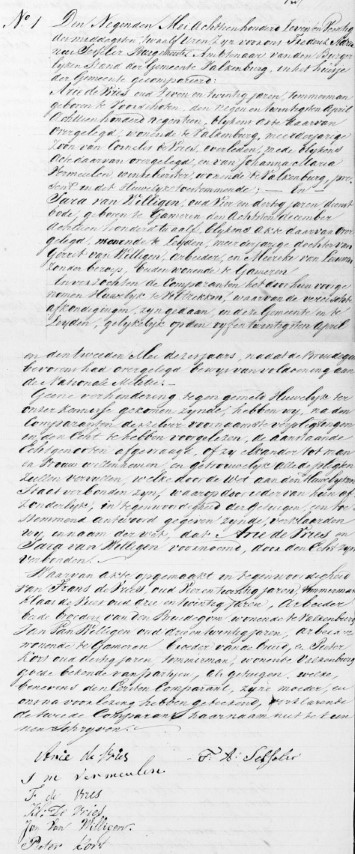 No 1
Den Negenden Mei Achttienhonderd Zeven en Veertig
des middags ten twaalf uren zyn voor ons Frederik
Ambtenaar van den Burger
lyken Stand der Gemeente Valkenburg, in het huisje
der Gemeente gecompareerd:
Arie de Vries oud Zeven en twintig jaren, timmerman
geboren te Voorschoten, den negen en twintigsten April
Achttienhonderd negentien, blykens acte hiervan
overgelegd, wonende te Valkenburg, meerderjarige
zoon van Cornelis de Vries, overleden, mede blykens
Acte daarvan overgelegd, en van Johanna Maria
Vermeulen, winkelierster, wonende te Valkenburg, pre
sent en in dit Huwelyk toestemmende; — En
Sara van Willigen, oud Vier en dertig jaren, dienst
bode, geboren te Gameren den Achtsten december
Achttien honderd twaalf, blykens acte daarvan over
gelegd, wonende te Leyden, meerderjarige dochter van
Gerrit van Willigen, arbeider, en
zonder beroep, beiden wonende te Gameren
En verzochten de Comparanten, het door hun voorge
nomen Huwelyk te voltrekken, waarvan de vereischte
afkondigingen, zyn gedaan, in deze Gemeente en te
Leyden, gelykelyk op den vyf en twintigsten April
en den tweeden Mei dezes jaars, nadat de Bruidegom
bevorens had overgelegd bewys van voldoening aan
de Nationale Militie. —
Geene verhindering tegen gemeld Huwelyk ter
onzer kennisse gekomen zynde, hebben wy, na den
Comparanten derzelver voornaamste verpligtingen
in den Echt te hebben voorgelezen, de aanstaande
Echtgenooten afgevraagd, of zy elkander tot man
en Vrouw willen nemen, en getrouwelyk alle de pligten
zullen vervullen, welke door de Wet aan den Huwelyken
Staat verbonden zyn, waarop door ieder van hun af
zonderlyk, in tegenwoordigheid der getuigen, een toe
stemmend antwoord gegeven zynde, verklaarden
wy, in naam der wet, dat Arie de Vries en
Sara van Willigen voornoemd, door den Echt zyn
Verbonden. —
Waarvan akte opgemaakt in tegenwoordigheid
van Frans de Vries, oud Vier en twintig jaren, timmerman
Klaas de Vries oud drie en twintig jaren, Arbeider
beide broeders van den Bruidegom, wonende te Valkenburg
Jan van Willigen oud drie en twintig jaren, arbeider
wonende te Gameren, broeder van de bruid, en Pieter
Kors oud dertig jaren, timmerman, wonende Valkenburg
goede bekende van partyen, als getuigen, welke,
benevens den Eersten Comparant, zyne moeder, en
ons na voorlezing hebben geteekend, verklarende
de tweede Comparant haar naam niet te kun
nen Schryven.
Arie de Vries
J M Vermeulen
F de Vries
Kl. De Vries
Jan van Willigen.
Pieter Kors